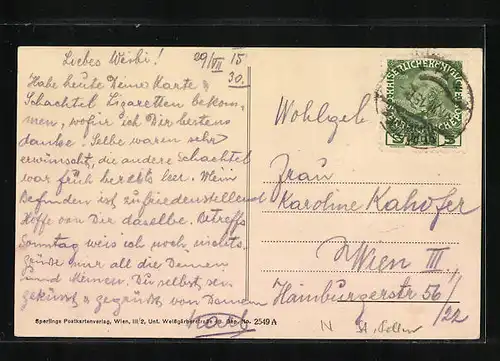 Liebes Weibi! 29/VII 15
30.
Habe heute Deine Karte &
Schachtel Zigaretten bekom-
men, wofür ich Dir bestens
danke. Selbe waren sehr
erwünscht, die andere Schachtel
war früh bereits leer. Mein
Befinden ist zufriedenstellend
Hoffe von Dir daselbe. Betreffs
Sonntag weis ich noch nichts.
Grüße mir all die Deinen
und Meinen. Du selbst sei
geküsst & gegrüßt von Deinem
Karl
Wohlgeb.
Frau
Karoline Kahofer
Wien III
Hainburgerstr 56/
22
Sperlings Postkartenverlag, Wien, III/2, Unt. Weißgärberstraße Dep. No. 2549 A
N